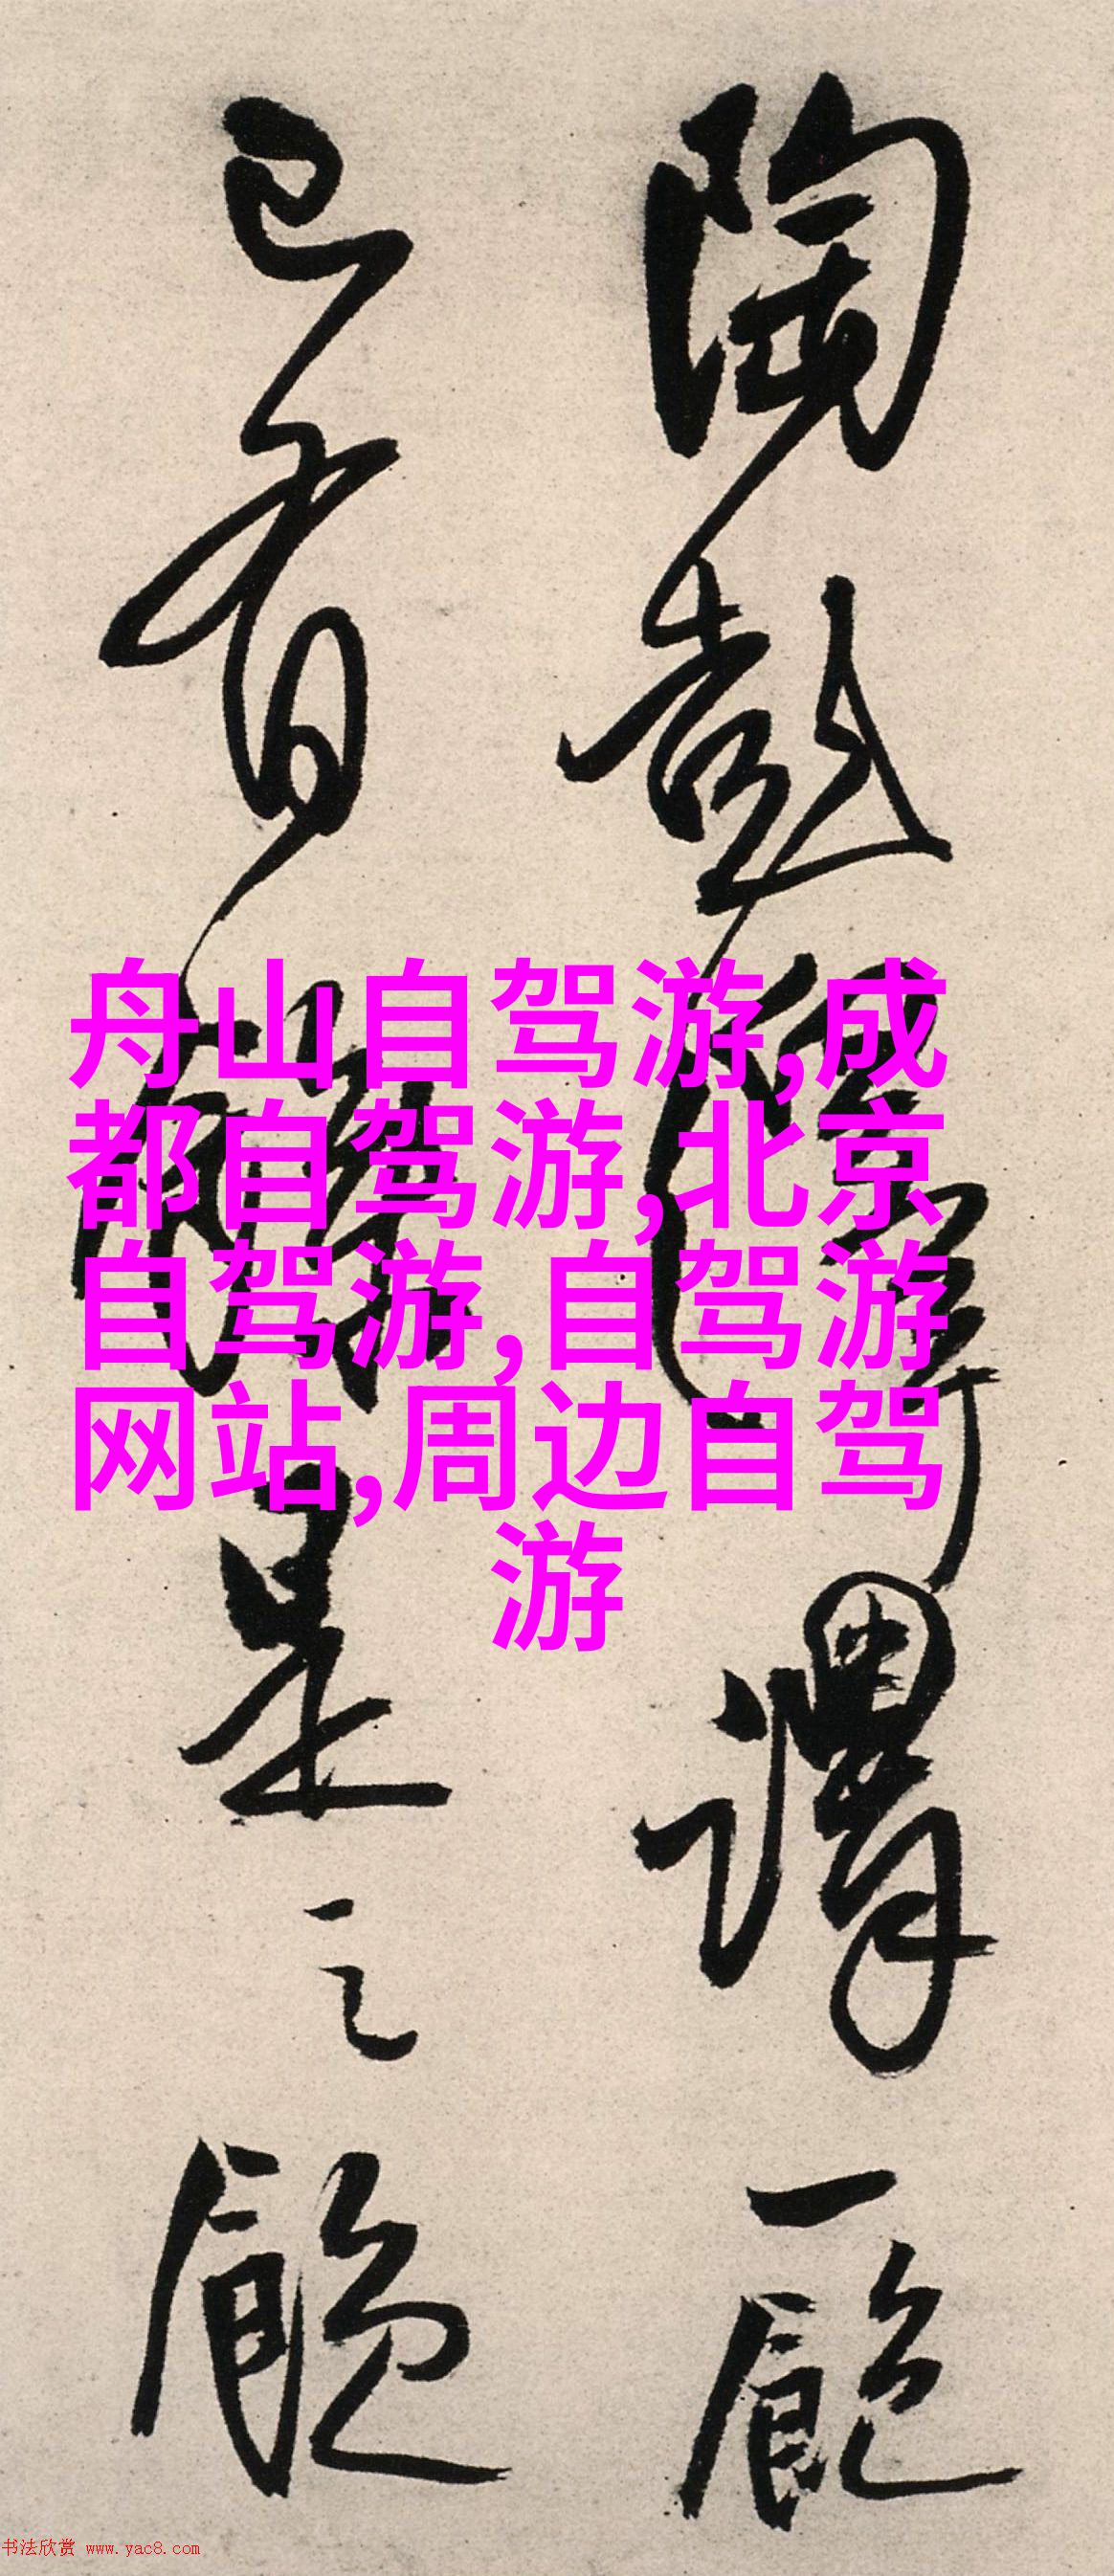 陶彭澤謂一飽
已有是之
舟山自驾游,成
都自驾游,北京
自驾游,自驾游
网站,周边自驾
游
书法欣赏 www.yac8.com